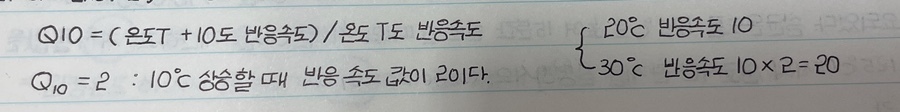 Q10 = (온도T +10도 반응속도) / 온도 T도 반응속도
{ 20℃ 반응속도 10
Q₁₀ = 2 : 10℃ 상승할 때 반응 속도 값이 2이다.
30℃ 반응속도 10 × 2 = 20